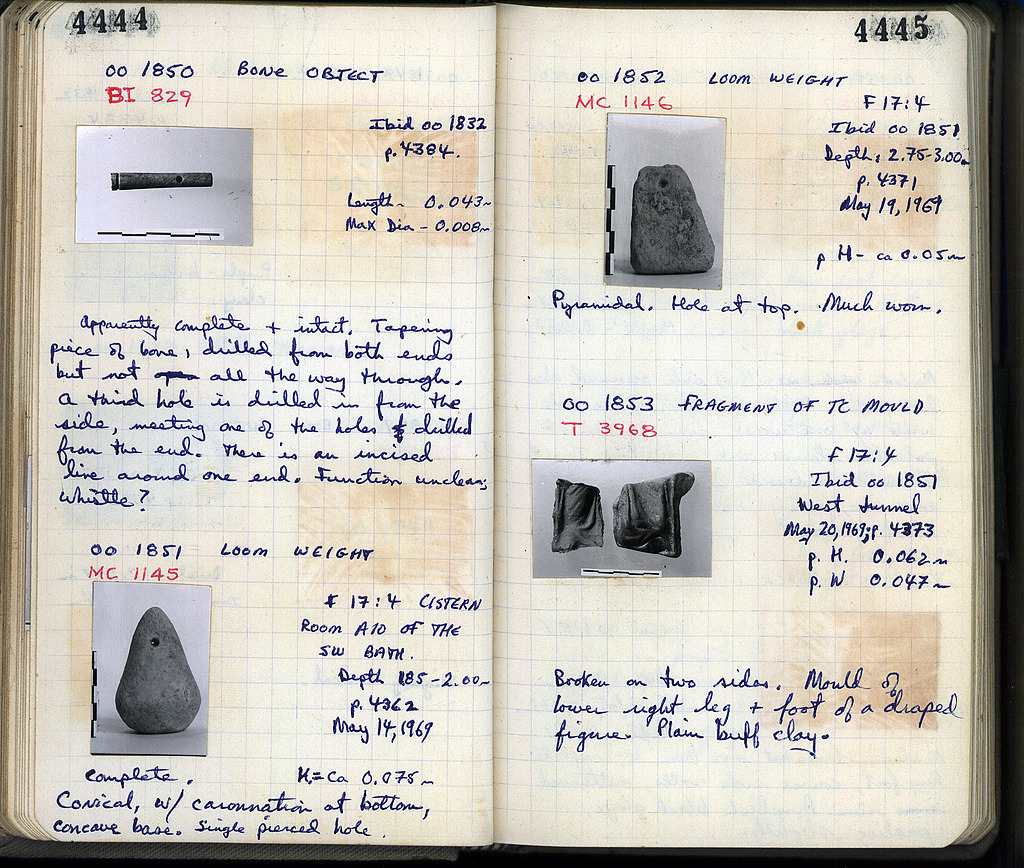 4444
OO 1850 BONE OBJECT
BI 829
Ibid OO 1832
p. 4384.
Length - 0.043m
Max Dia - 0.008m
Apparently complete + intact. Tapering
piece of bone, drilled from both ends
but not all the way through.
A third hole is drilled in from the
side, meeting one of the holes drilled
from the end. There is an incised
line around one end. Function unclear;
whistle?
OO 1851 LOOM WEIGHT
MC 1145
F 17:4 CISTERN
ROOM A10 OF THE
SW BATH.
Depth 1.85-2.00m
p. 4362
May 14, 1969
Complete. H. = ca 0.075m
Conical, w/ caronnation at bottom,
concave base. Single pierced hole.
4445
OO 1852 LOOM WEIGHT
MC 1146
F 17:4
Ibid OO 1851
Depth: 2.75-3.00m
p. 4371
May 19, 1969
p H - ca 0.05m
Pyramidal. Hole at top. Much worn.
OO 1853 FRAGMENT OF TC MOULD
T 3968
F 17:4
Ibid OO 1851
West tunnel
May 20, 1969; p. 4373
p. H. 0.062m
p. W 0.047m
Broken on two sides. Mould of
lower right leg + foot of a draped
figure. Plain buff clay.